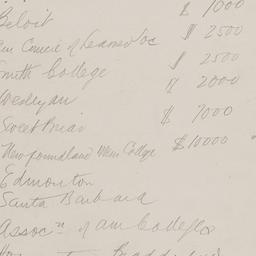 Beloit $ 1000
Am Council of Learned Soc $ 2500
Smith College $ 2500
Wesleyan $ 2000
Sweet Briar $ 7000
Newfoundland Mem College $ 10000
Edmonton
Santa Barbara
Assocn of Am Colleges